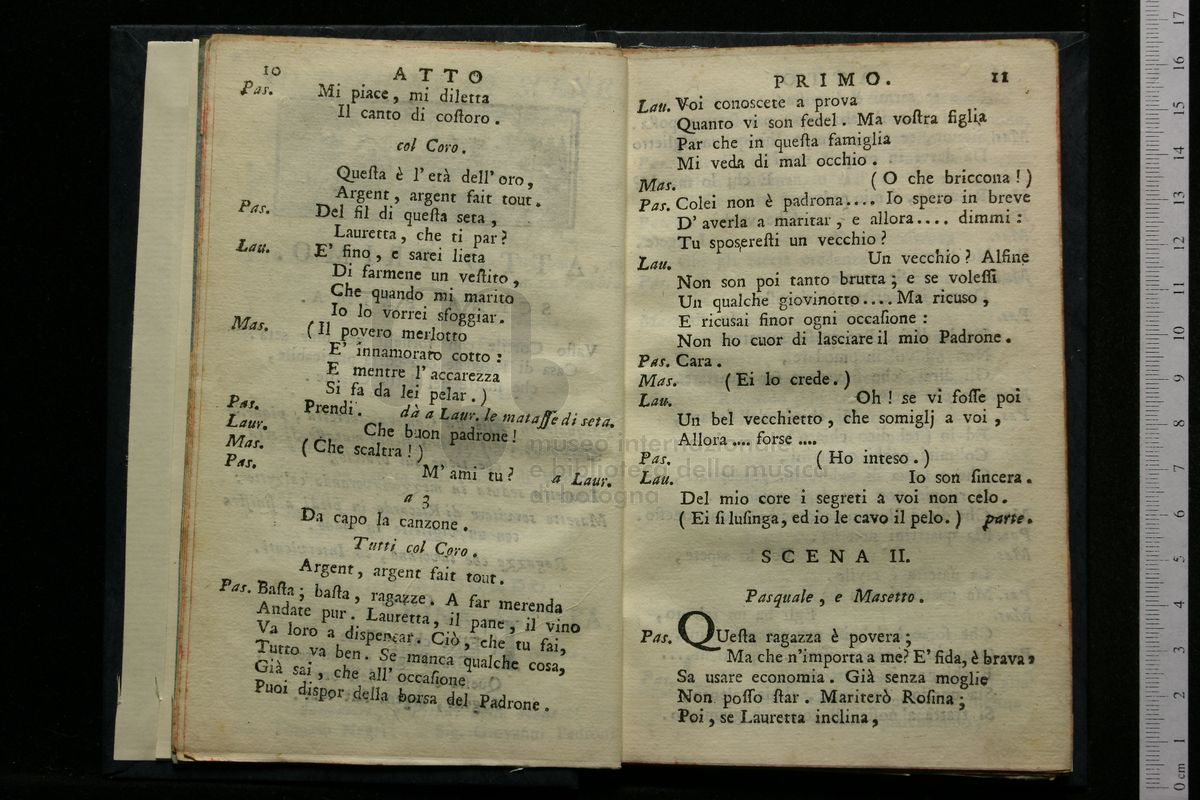 10
ATTO
Pas. Mi piace, mi diletta
Il canto di coſtoro.
col Coro.
Queſta è l'età dell'oro,
Argent, argent fait tout.
Pas. Del fil di queſta seta,
Lauretta, che ti par?
Lau. E' fino, e sarei lieta
Di farmene un veſtito,
Che quando mi marito
Io lo vorrei sfoggiar.
Mas. (Il povero merlotto
E' innamorato cotto:
E mentre l'accarezza
Si fa da lei pelar.)
Pas. Prendi. dà a Laur. le mataſſe di seta.
Laur. Che buon padrone!
Mas. (Che scaltra!)
Pas. M'ami tu? a Laur.
a 3
Da capo la canzone.
Tutti col Coro.
Argent, argent fait tout.
Pas. Baſta; baſta, ragazze. A far merenda
Andate pur. Lauretta, il pane, il vino
Va loro a dispensar. Ciò, che tu fai,
Tutto va ben. Se manca qualche cosa,
Già sai, che all'occaſione
Puoi dispor della borsa del Padrone.
PRIMO.
11
Lau. Voi conoscete a prova
Quanto vi son fedel. Ma voſtra figlia
Par che in queſta famiglia
Mi veda di mal occhio.
Mas. (O che briccona!)
Pas. Colei non è padrona.... Io spero in breve
D'averla a maritar, e allora.... dimmi:
Tu sposereſti un vecchio?
Lau. Un vecchio? Alfine
Non son poi tanto brutta; e se voleſſi
Un qualche giovinotto.... Ma ricuso,
E ricusai finor ogni occaſione:
Non ho cuor di lasciare il mio Padrone.
Pas. Cara.
Mas. (Ei lo crede.)
Lau. Oh! se vi foſſe poi
Un bel vecchietto, che somiglj a voi,
Allora .... forse ....
Pas. (Ho inteso.)
Lau. Io son ſincera.
Del mio core i segreti a voi non celo.
(Ei ſi luſinga, ed io le cavo il pelo.) parte.
SCENA II.
Pasquale, e Masetto.
Pas. QUeſta ragazza è povera;
Ma che n'importa a me? E' fida, è brava,
Sa usare economia. Già senza moglie
Non poſſo ſtar. Mariterò Roſina;
Poi, se Lauretta inclina,
museo internazionale
e biblioteca della musica
di bologna
17
16
15
14
13
12
11
10
9
8
7
6
5
4
3
2
1
0 cm